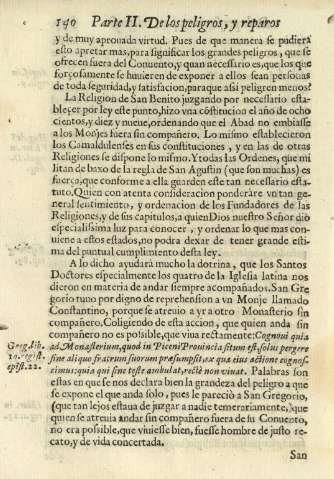 140 Parte II. De los peligros, y reparos
y de muy aprouada virtud. Pues de que manera se pudiera
esto apretar mas, para significar los grandes peligros, que se
ofrecen fuera del Conuento, y quan necessario es, que los que
forçosamente se huuieren de exponer a ellos sean personas
de toda seguridad, y satisfacion, para que assi peligren menos?
La Religion de San Benito juzgando por necessario esta-
blecer por ley este punto, hizo vna costitucion el año de ocho
cientos, y diez y nueue, ordenando que el Abad no embiasse
a los Monjes fuera sin compañero. Lo mismo establecieron
los Camaldulenses en sus constituciones, y en las de otras
Religiones se dispone lo mismo. Y todas las Ordenes, que mi
litan debaxo de la regla de San Agustin (que son muchas) es
fuerça, que conforme a ella guarden este tan necessario esta-
tuto. Quien con atenta consideracion ponderare vn tan ge-
neral sentimiento, y ordenacion de los Fundadores de las
Religiones, y de sus capitulos, a quien Dios nuestro Señor dio
especialissima luz para conocer, y ordenar lo que mas con-
uiene a estos estados, no podra dexar de tener grande esti-
ma del puntual cumplimiento desta ley.
A lo dicho ayudará mucho la dotrina, que los Santos
Doctores especialmente los quatro de la Iglesia latina nos
dieron en materia de andar siempre acompañados. San Gre
gorio tuuo por digno de reprehension a vn Monje llamado
Constantino, porque se atreuio a yr a otro Monasterio sin
compañero. Coligiendo de esta accion, que quien anda sin
compañero no es possible, que viua rectamente: Cognoui quia
Greg. lib. ad Monasterium, quod in Piceni Prouincia situm est, solus pergere
10. regist. sine aliquo fratrum suorum præsumpsit, ex qua eius actione cognos-
epist. 22. cimus: quia qui sine teste ambulat, rectè non viuat. Palabras son
estas en que se nos declara bien la grandeza del peligro a que
se expone el que anda solo, pues le pareciò a San Gregorio,
(que tan lejos estaua de juzgar a nadie temerariamente,) que
quien se atreuia andar sin compañero fuera de su Conuento,
no era possible, que viuiesse bien, fuesse hombre de justo re-
cato, y de vida concertada.
San